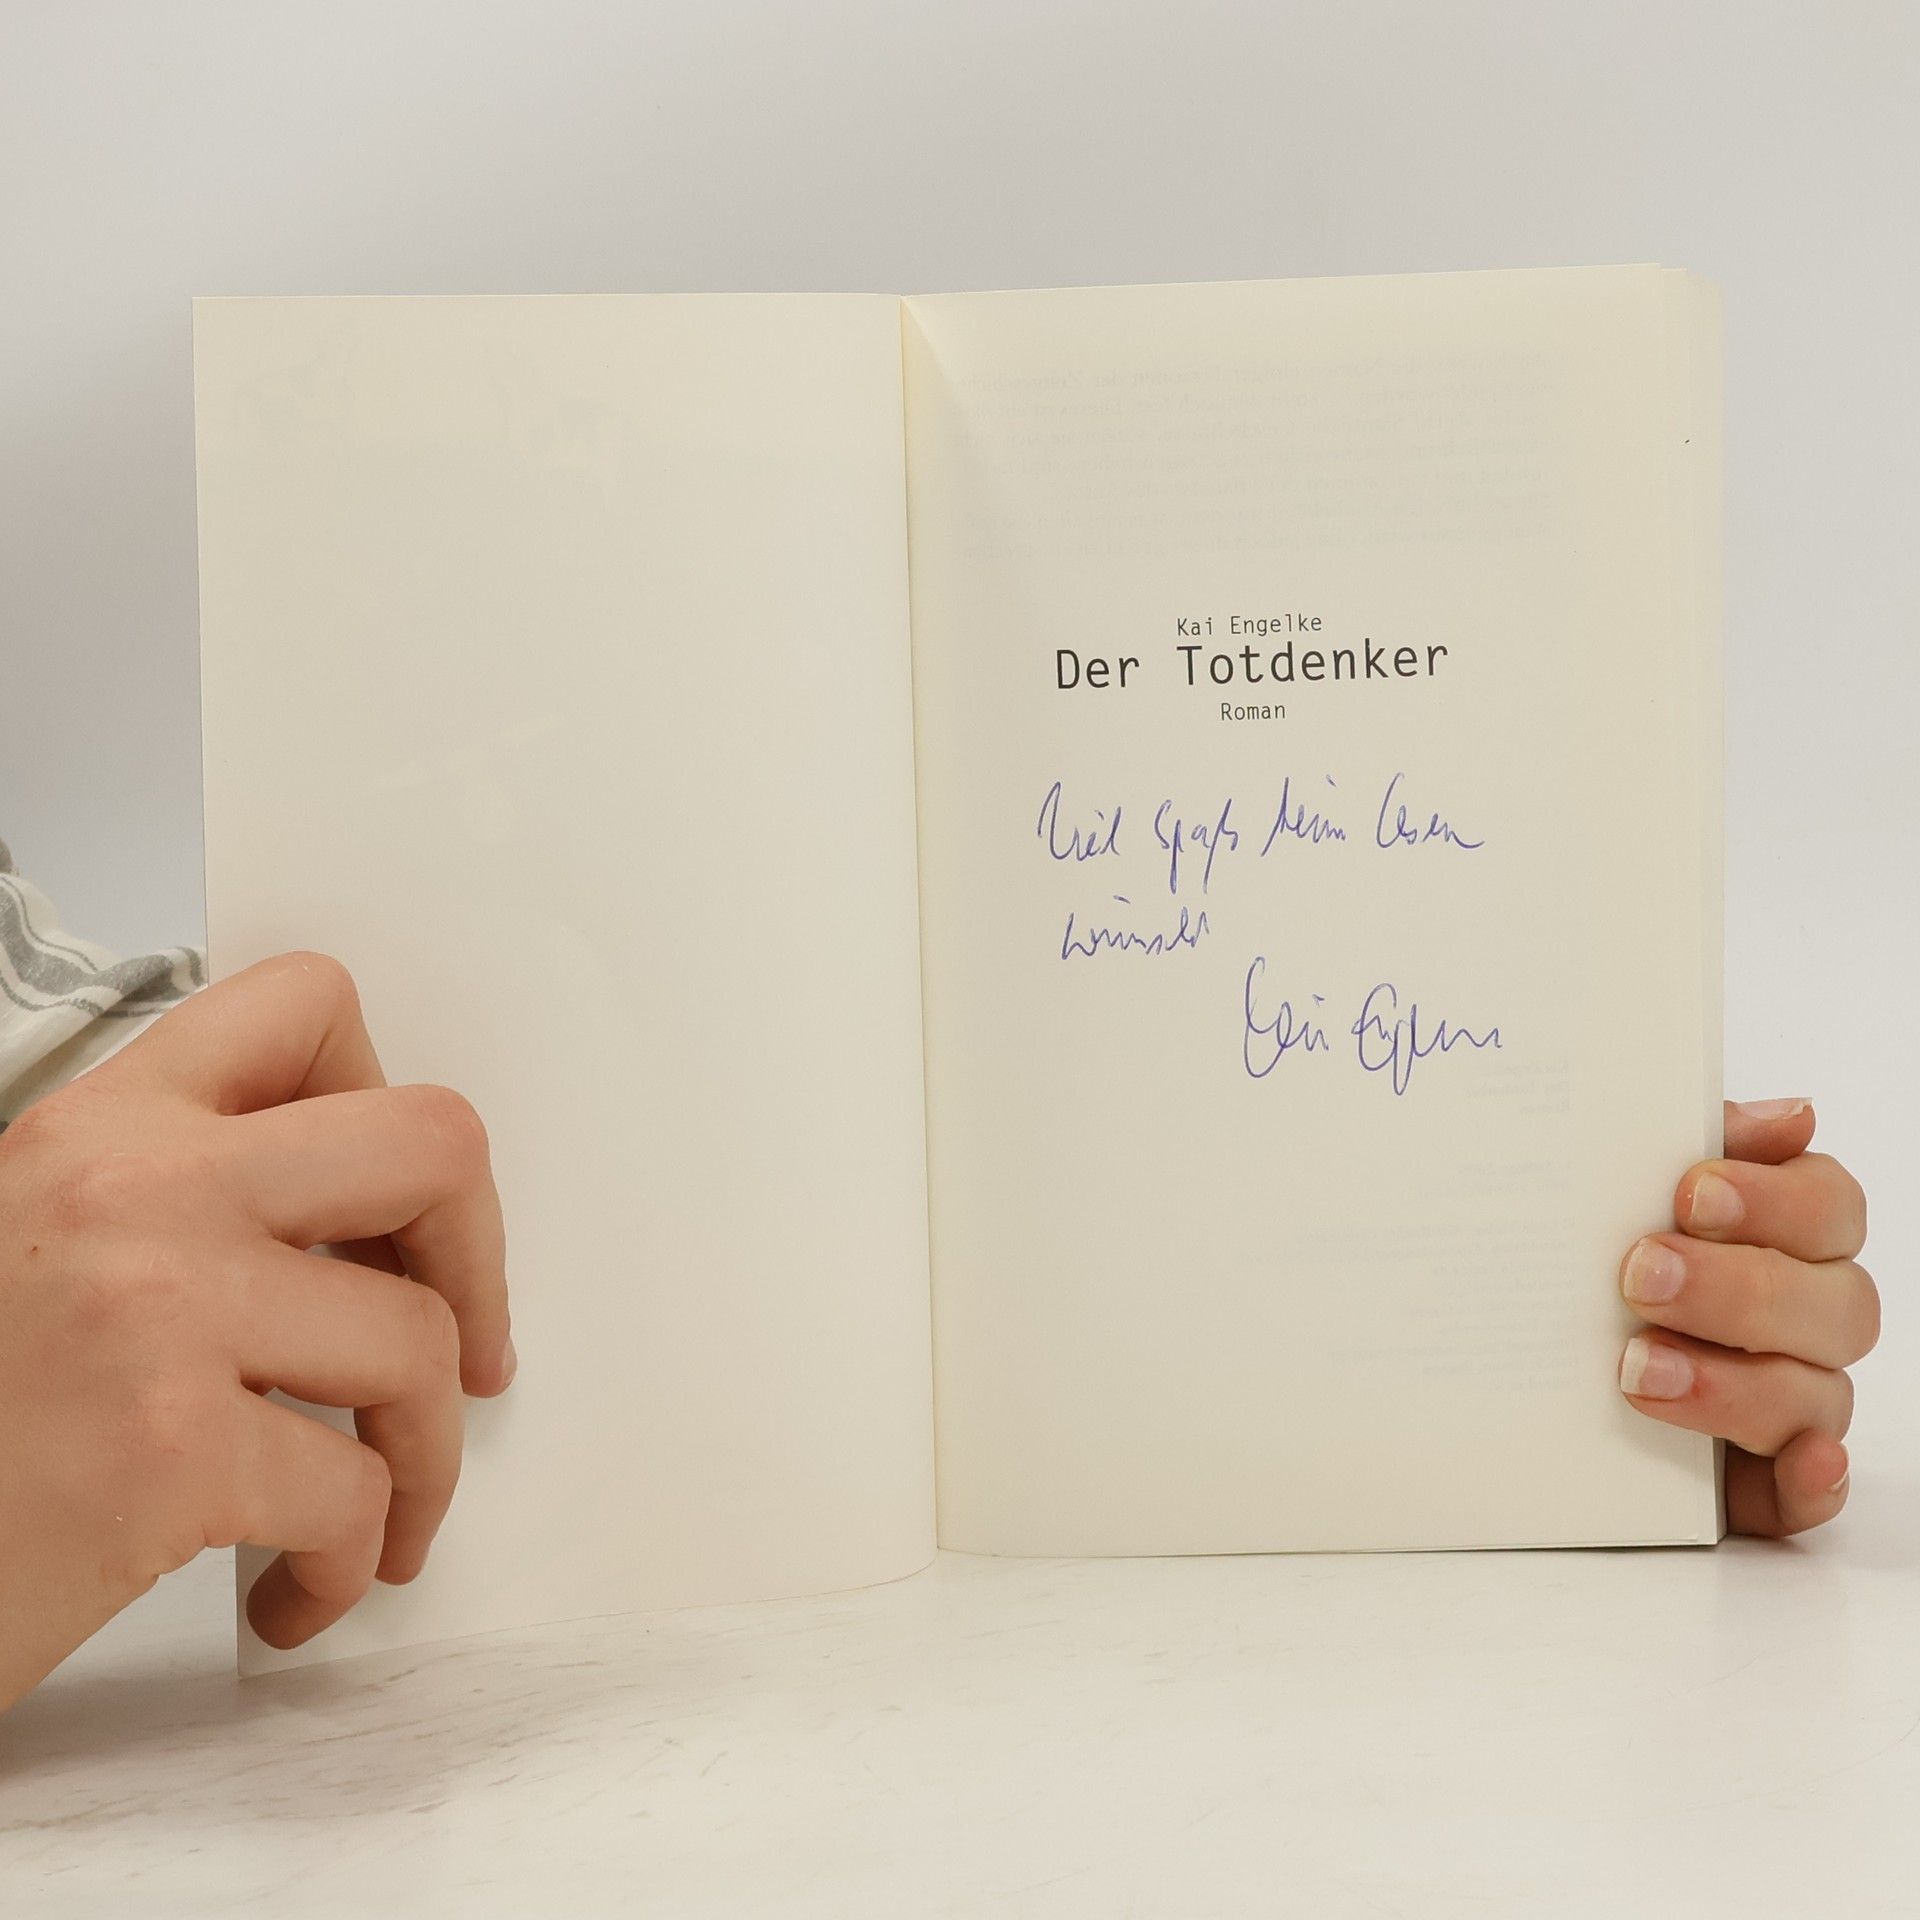 Kai Engelke
Der Totdenker
Roman
Viel Spaß beim Lesen
wünscht
Kai Engelke